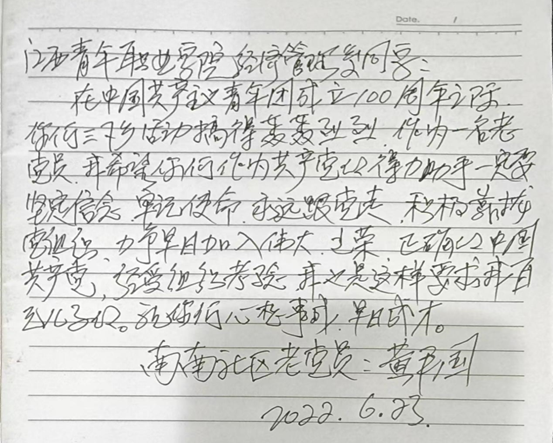 Date. /
江西青年职业学院 经济管理系同学:
在中国共产主义青年团成立100周年之际
你们三下乡活动搞得轰轰烈烈 作为一名老
党员 我希望你们作为共产党的得力助手一定要
坚定信念 牢记使命 永远跟党走 积极靠拢
党组织 力争早日加入伟大 光荣 正确的中国
共产党, 经受组织考验 我也是这样要求我自
己的。祝你们心想事成, 早日成才。
南南社区老党员: 黄
2022.6.23.